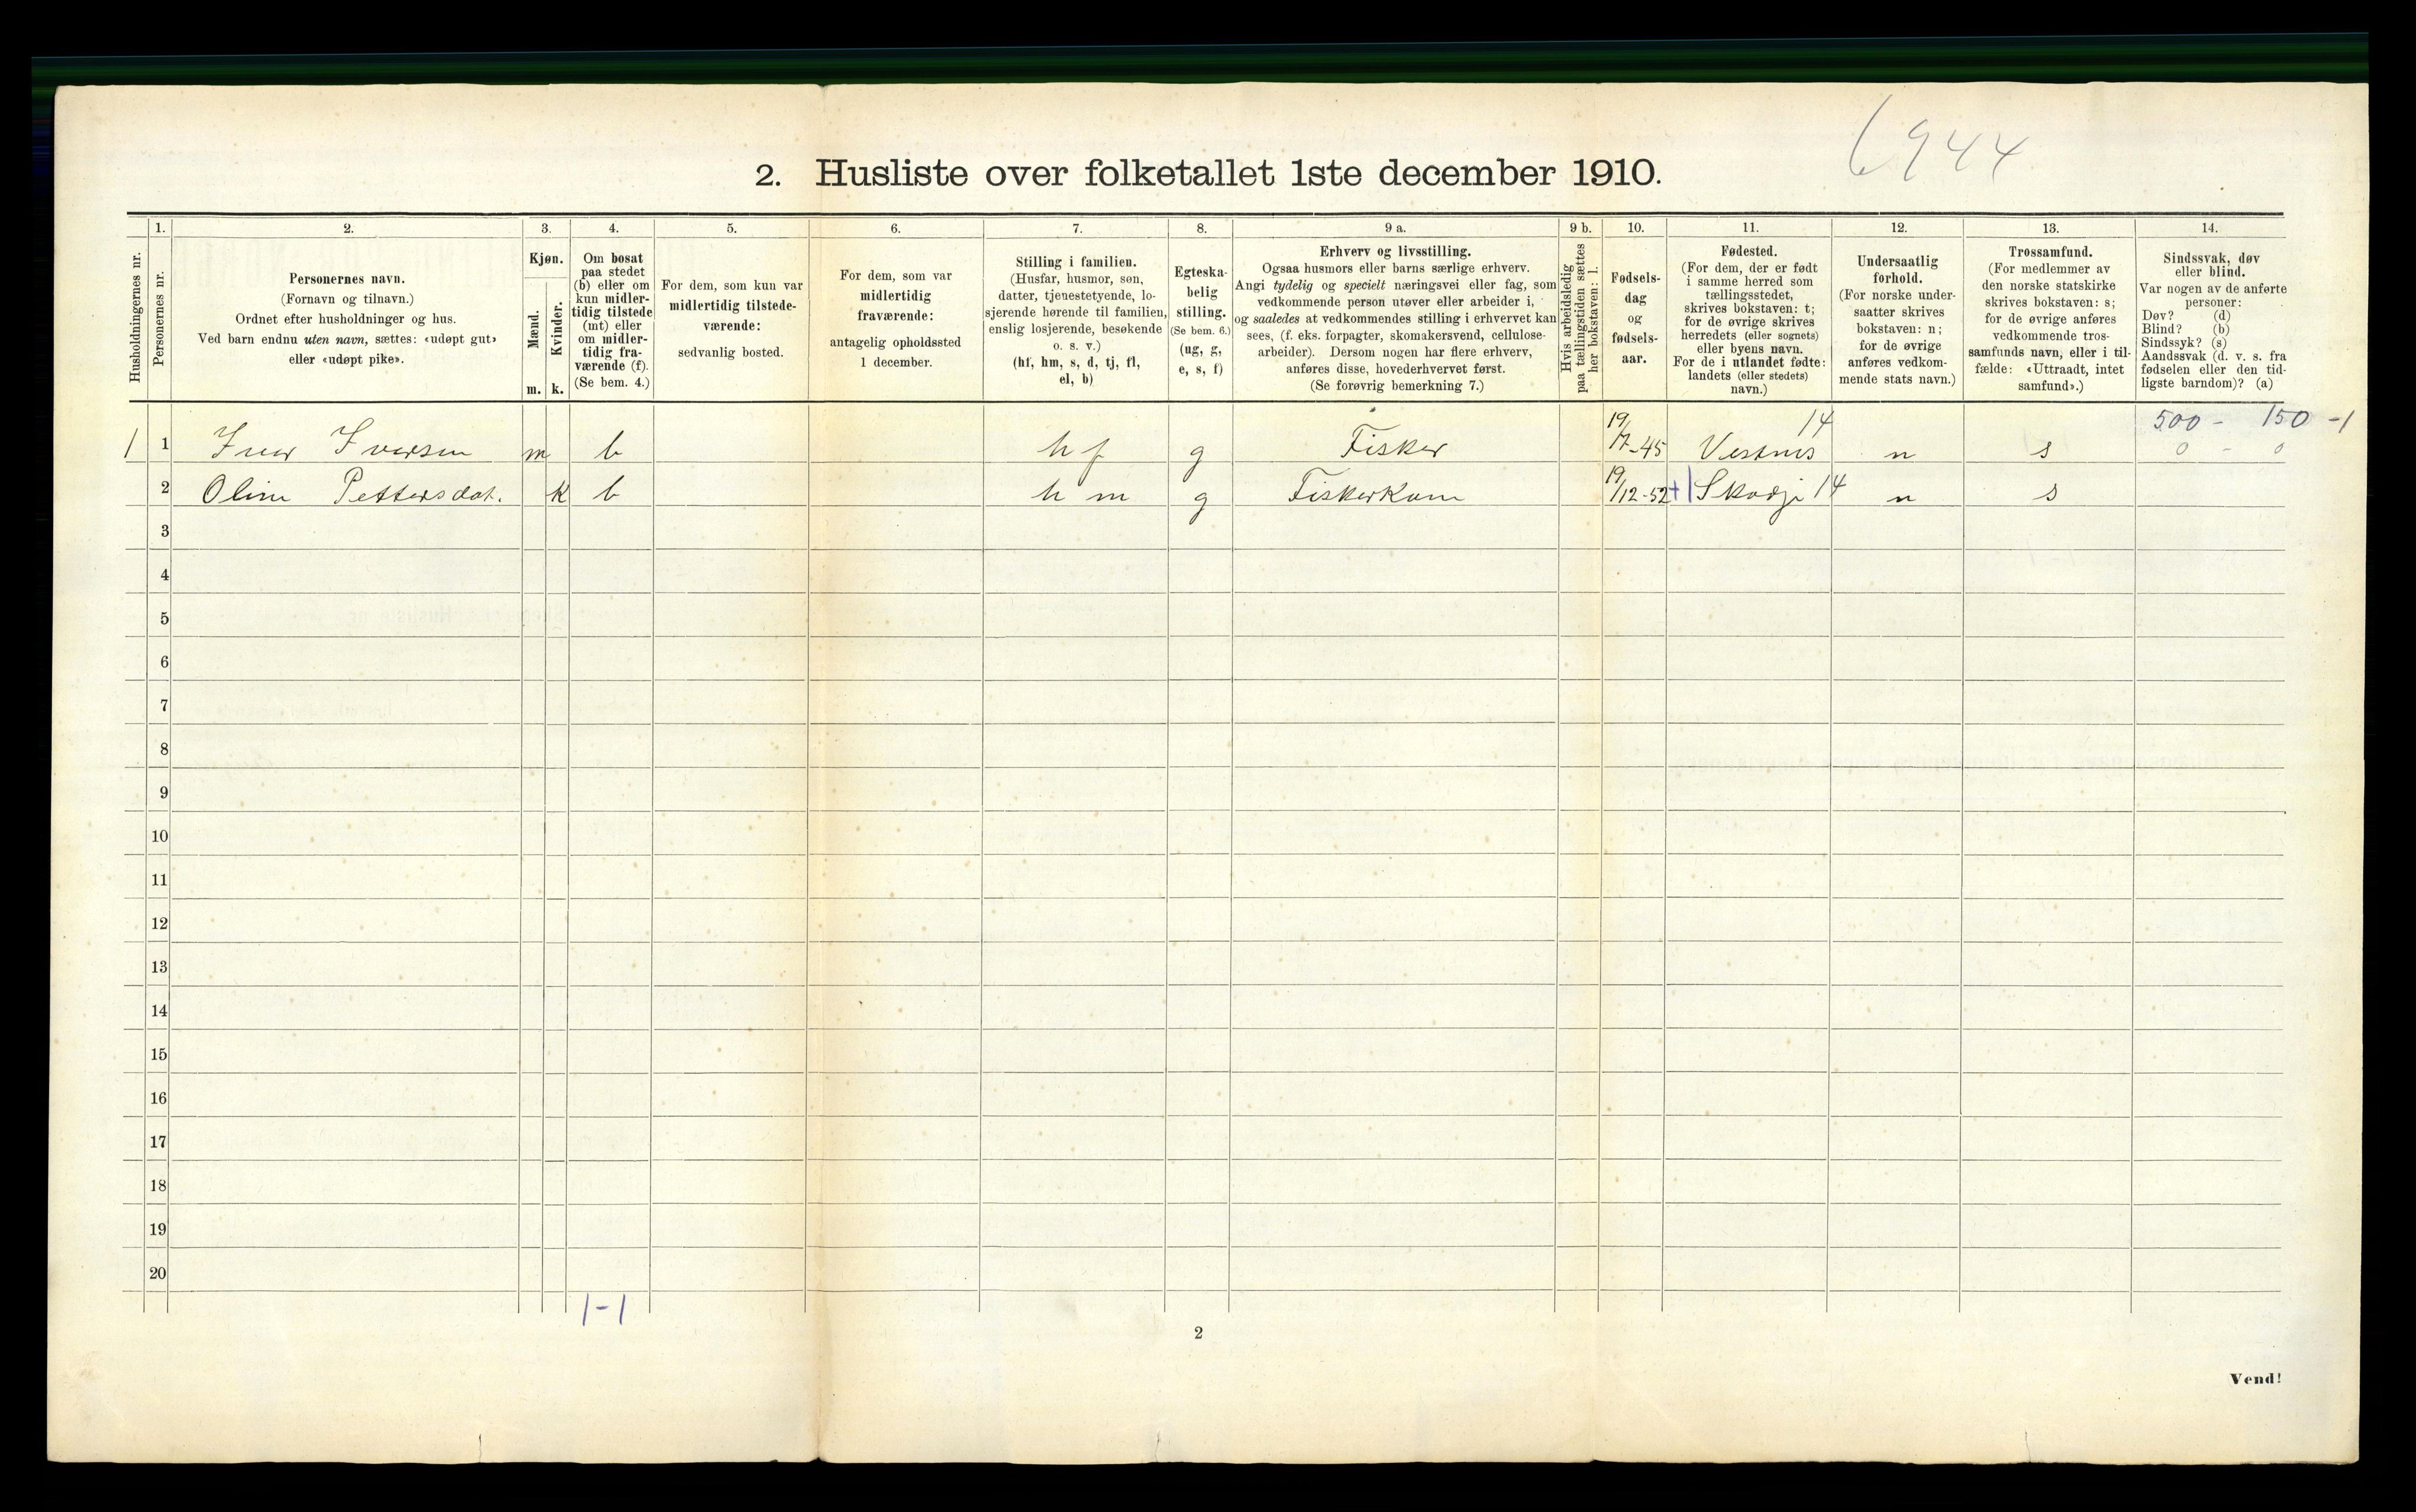 6944
2. Husliste over folketallet 1ste december 1910.
Husholdningernes nr.
1.
Personernes nr.
2.
Personernes navn.
(Fornavn og tilnavn.)
Ordnet efter husholdninger og hus.
Ved barn endnu uten navn, sættes: «udøpt gut»
eller «udøpt pike».
3.
Kjøn.
Mænd.
Kvinder.
m. k.
4.
Om bosat
paa stedet
(b) eller om
kun midler-
tidig tilstede
(mt) eller
om midler-
tidig fra-
værende (f).
(Se bem. 4.)
5.
For dem, som kun var
midlertidig tilstede-
værende:
sedvanlig bosted.
6.
For dem, som var
midlertidig
fraværende:
antagelig opholdssted
1 december.
7.
Stilling i familien.
(Husfar, husmor, søn,
datter, tjenestetyende, lo-
sjerende hørende til familien,
enslig losjerende, besøkende
o. s. v.)
(hf, hm, s, d, tj, fl,
el, b)
8.
Egteska-
belig
stilling.
(Se bem. 6.)
(ug, g,
e, s, f)
9 a.
Erhverv og livsstilling.
Ogsaa husmors eller barns særlige erhverv.
Angi tydelig og specielt næringsvei eller fag, som
vedkommende person utøver eller arbeider i,
og saaledes at vedkommendes stilling i erhvervet kan
sees, (f. eks. forpagter, skomakersvend, cellulose-
arbeider). Dersom nogen har flere erhverv,
anføres disse, hovederhvervet først.
(Se forøvrig bemerkning 7.)
9 b.
Hvis arbeidsledig
paa tællingstiden sættes
her bokstaven: l.
10.
Fødsels-
dag
og
fødsels-
aar.
11.
Fødested.
(For dem, der er født
i samme herred som
tællingsstedet,
skrives bokstaven: t;
for de øvrige skrives
herredets (eller sognets)
eller byens navn.
For de i utlandet fødte:
landets (eller stedets)
navn.)
12.
Undersaatlig
forhold.
(For norske under-
saatter skrives
bokstaven: n;
for de øvrige
anføres vedkom-
mende stats navn.)
13.
Trossamfund.
(For medlemmer av
den norske statskirke
skrives bokstaven: s;
for de øvrige anføres
vedkommende tros-
samfunds navn, eller i til-
fælde: «Uttraadt, intet
samfund».)
14.
Sindssvak, døv
eller blind.
Var nogen av de anførte
personer:
Døv? (d)
Blind? (b)
Sindssyk? (s)
Aandssvak (d. v. s. fra
fødselen eller den tid-
ligste barndom)? (a)
14 500 - 150 -1
1 1 Iver Iversen m b hf g Fisker 19/7-45 Vestnes n s 0 - 0
2 Oline Pettersdat. k b hm g Fiskerkone 19/12-52 + | Skodje 14 n s
3
4
5
6
7
8
9
10
11
12
13
14
15
16
17
18
19
20
1-1
2
Vend!